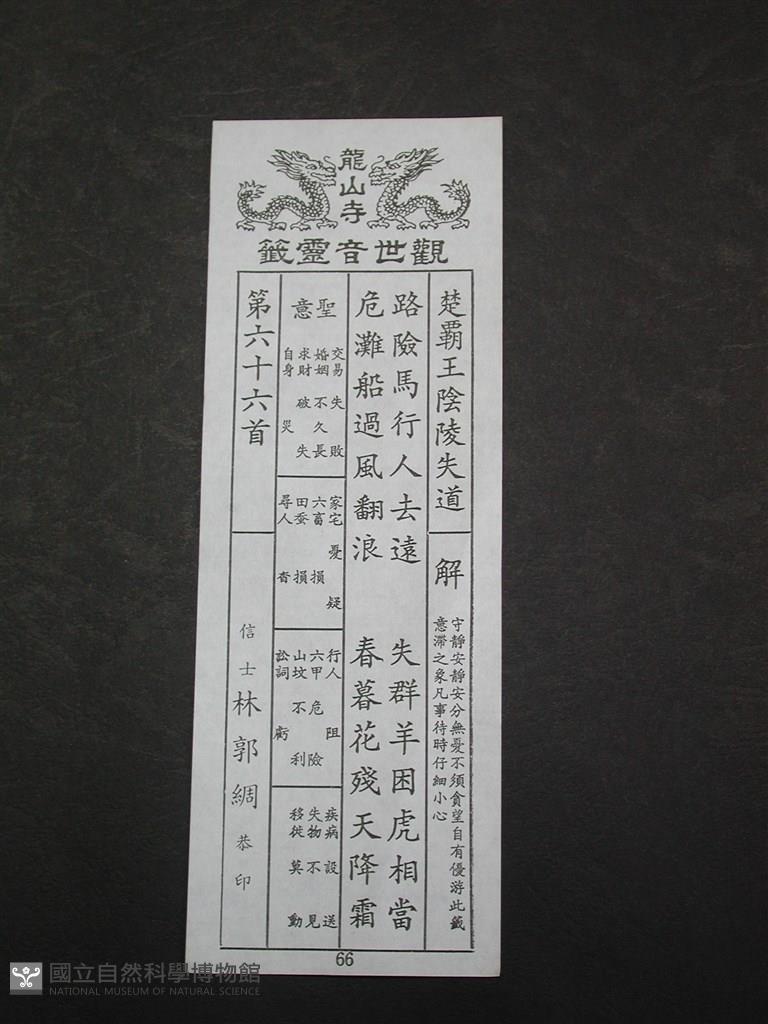 龍山寺
觀世音靈籤
楚霸王陰陵失道
解
守靜安靜安分無憂不須貪望自有優游此籤
意滯之象凡事待時仔細小心
路險馬行人去遠 失群羊困虎相當
危灘船過風翻浪 春暮花殘天降霜
聖意
交易 失敗
婚姻 不久長
求財 破失
自身 災
家宅 憂疑
六畜 損
田蚕 損
尋人 杳
行人 阻
六甲 危險
山墳 不利
訟詞 虧
疾病 設送
失物 不見
移徙 莫動
第六十六首
信士 林郭綢 恭印
66
國立自然科學博物館
NATIONAL MUSEUM OF NATURAL SCIENCE